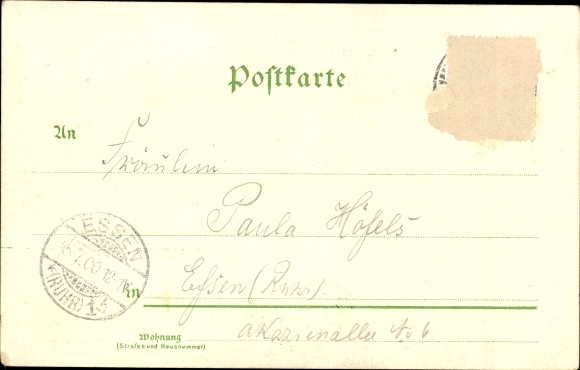 Postkarte
An
Fräulein
Paula Höfels
ESSEN
.00.12-
*(RUHR)1*
in Essen (Ruhr).
Akazienallee No 6
Wohnung
(Straße und Hausnummer)